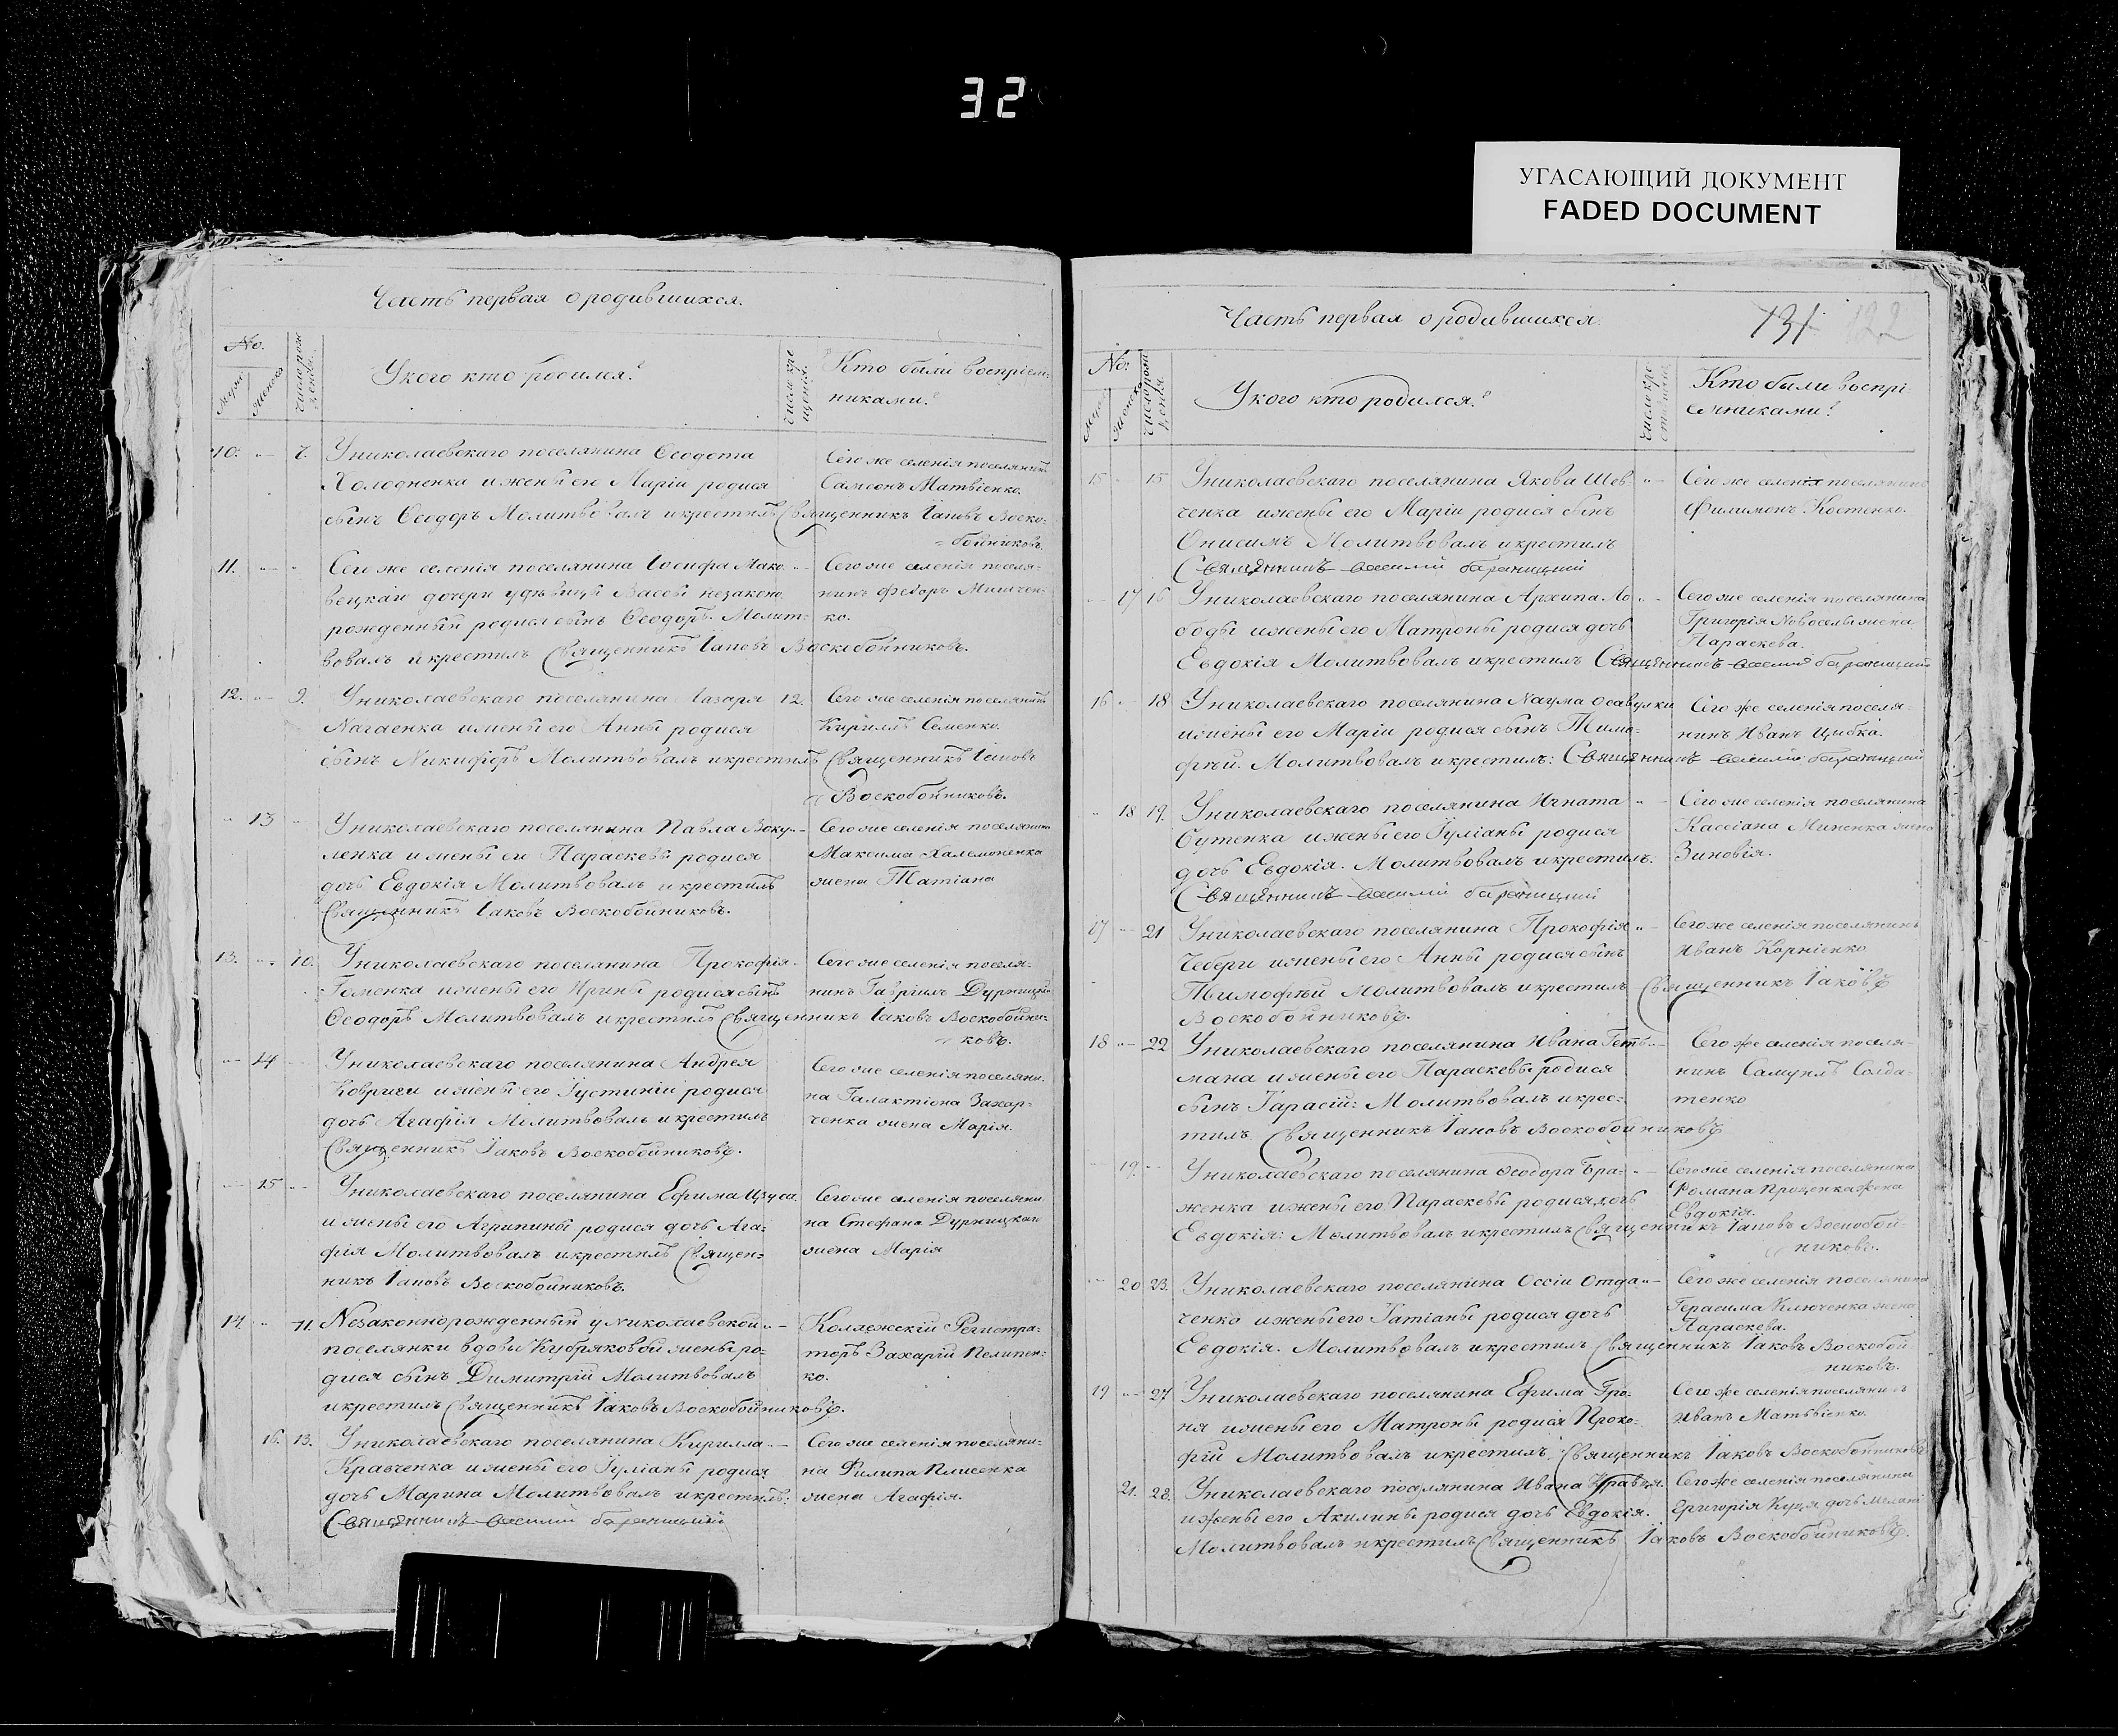 32
УГАСАЮЩИЙ ДОКУМЕНТ
FADED DOCUMENT
Часть первая о родившихся.
No.
Число рож
денія.
У кого кто родился?
Число кре
щенія.
Кто были воспріем-
никами?
10. 7. У николаевскаго поселянина Ѳеодота
Холодненка и жены его Маріи родися
сынъ Ѳеодоръ Молитвовалъ и крестилъ Священникъ Іаковъ Воско-
бойниковъ.
Сего же селенія поселянинъ
Самсонъ Матвіенко.
11. Сего же селенія поселянина Іосифа Мако-
вецкаго дочери удѣвицы Вассы незаконо
рожденный родился сынъ Ѳеодоръ. Молит-
вовалъ и крестилъ Священникъ Іаковъ Воскобойниковъ.
Сего же селенія поселя-
нинъ Федоръ
ко.
12. 9. У николаевскаго поселянина Лазаря 12.
Нагаенка и жены его Анны родися
сынъ Никифоръ Молитвовалъ и крестилъ Священникъ Іаковъ
Воскобойниковъ.
Сего же селенія поселянинъ
Кириллъ Семенко.
13 У николаевскаго поселянина Павла Воку-
ленка и жены его Параскевы родися
дочь Евдокія Молитвовалъ и крестилъ
Священникъ Іаковъ Воскобойниковъ.
Сего же селенія поселянина
Максима Халемоненка
жена Татіана
13. 10. У николаевскаго поселянина Прокофія
и жены его Ирины родися сынъ
Ѳеодоръ Молитвовалъ и крестилъ Священникъ Іаковъ Воскобойни-
ковъ.
Сего же селенія поселя-
нинъ Гавріилъ Дурницкій
14 У николаевскаго поселянина Андрея
Ковриги и жены его Іустиніи родися
дочь Агафія Молитвовалъ и крестилъ
Священникъ Іаковъ Воскобойниковъ.
Сего же селенія поселяни-
на Галактіона Захар-
ченка жена Марія.
15 У николаевскаго поселянина Ефима
и жены его Агрипины родися дочь Ага-
фія Молитвовалъ и крестилъ Священ-
никъ Іаковъ Воскобойниковъ.
Сего же селенія поселяни-
на Стефана Дурницкаго
жена Марія
14. 11. Незаконнорожденный у николаевской
поселянки вдовы Кубряковой жены ро-
дися сынъ Димитрій Молитвовалъ
и крестилъ Священникъ Іаковъ Воскобойниковъ.
Коллежскій Регистра-
торъ Захарій Пелипен-
ко.
16. 13. У николаевскаго поселянина Кирилла
Кравченка и жены его Іуліаны родися
дочь Марина Молитвовалъ и крестилъ:
Священникъ Василій Бараницкій
Сего же селенія поселяни-
на Филипа Плисенка
жена Агафія.
Часть первая о родившихся.
131
122
No:
У кого кто родился?
Кто были воспрі-
емниками?
15 15 У николаевскаго поселянина Якова Шев-
ченка и жены его Маріи родися сынъ
Онисимъ Молитвовалъ и крестилъ
Священникъ Василій Бараницкій
Сего же селенія поселянинъ
Филимонъ Костенко.
17 16 У николаевскаго поселянина Архипа Ло-
боды и жены его Матроны родися дочь
Евдокія Молитвовалъ и крестилъ Священникъ Василій Бараницкій
Сего же селенія поселянина
Григорія Новоселы жена
Параскева.
16 18 У николаевскаго поселянина Наума Осавулки
и жены его Маріи родися сынъ Тимо-
фѣй. Молитвовалъ и крестилъ: Священникъ Василій Бараницкій
Сего же селенія поселя-
нинъ Иванъ Цибка.
18 19. У николаевскаго поселянина Игната
Сутенка и жены его Іуліаны родися
дочь Евдокія. Молитвовалъ и крестилъ.
Священникъ Василій Бараницкій
Сего же селенія поселянина
Кассіана Миненка жена
Зиновія.
17 21 У николаевскаго поселянина Прокофія
Чебери и жены его Анны родися сынъ
Тимофѣй Молитвовалъ и крестилъ Священникъ Іаковъ
Воскобойниковъ.
Сего же селенія поселянинъ
Иванъ Корніенко
18 22 У николаевскаго поселянина Ивана Геть-
мана и жены его Параскевы родися
сынъ Тарасій: Молитвовалъ и крес-
тилъ Священникъ Іаковъ Воскобойниковъ
Сего же селенія поселя-
нинъ Самуилъ Солда-
тенко
19. У николаевскаго поселянина Ѳеодора Бра-
женка и жены его Параскевы родися дочь
Евдокія: Молитвовалъ и крестилъ Священникъ Іаковъ Воскобой-
никовъ.
Сего же селенія поселянина
Романа Проценка жена
Евдокія.
20 23. У николаевскаго поселянина Оссіи Отда-
ченко и жены его Татіаны родися дочь
Евдокія. Молитвовалъ и крестилъ Священникъ Іаковъ Воскобой
никовъ.
Сего же селенія поселянина
Герасима Ключенка жена
Параскева.
19 27 У николаевскаго поселянина Ефима Гро-
ня и жены его Матроны родися Проко-
фій Молитвовалъ и крестилъ Священникъ Іаковъ Воскобойниковъ
Сего же селенія поселянинъ
Иванъ Матвіенко.
21. 28. У николаевскаго поселянина Ивана Кравця.
и жены его Акилины родися дочь Евдокія.
Молитвовалъ и крестилъ Священникъ Іаковъ Воскобойниковъ.
Сего же селенія поселянина
Григорія Куця дочь